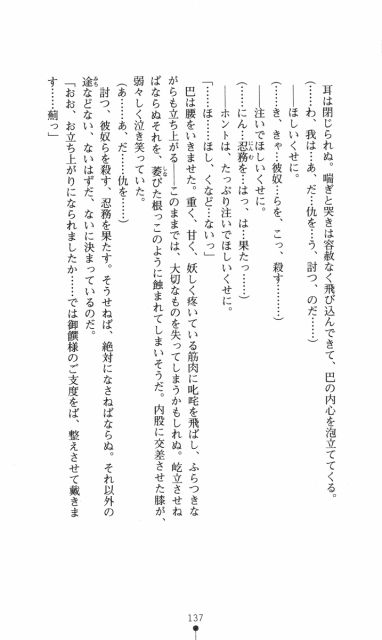 耳は閉じられぬ。喘ぎと哭きは容赦なく飛び込んできて、巴の内心を泡立ててくる。
(……わ、我は…あ、だ…仇を…う、討つ、のだ……)
――ほしいくせに。
(……き、きゃ…彼奴…らを、こっ、殺す………)
――注いでほしいくせに。
(……にん…忍務を…はっ、は…果たっ……)
――ホントは、たっぷり注いでほしいくせに。
「……ほ……ほし、くなど…ないっ」
巴は腰をいきませた。重く、甘く、妖しく疼いている筋肉に叱咤を飛ばし、ふらつきな
がらも立ち上がる――このままでは、大切なものを失ってしまうかもしれぬ。屹立させね
ばならぬそれを、萎びた根っこのように蝕まれてしまいそうだ。内股に交差させた膝が、
弱々しく泣き笑っていた。
(あ……あ、だ……仇を……)
討つ、彼奴らを殺す、忍務を果たす。そうせねば、絶対になさねばならぬ。それ以外の
途などない、ないはずだ、ないに決まっているのだ。
「おお、お立ち上がりになられましたか……では御饌様のご支度をば、整えさせて戴きま
す……蓟っ」
137